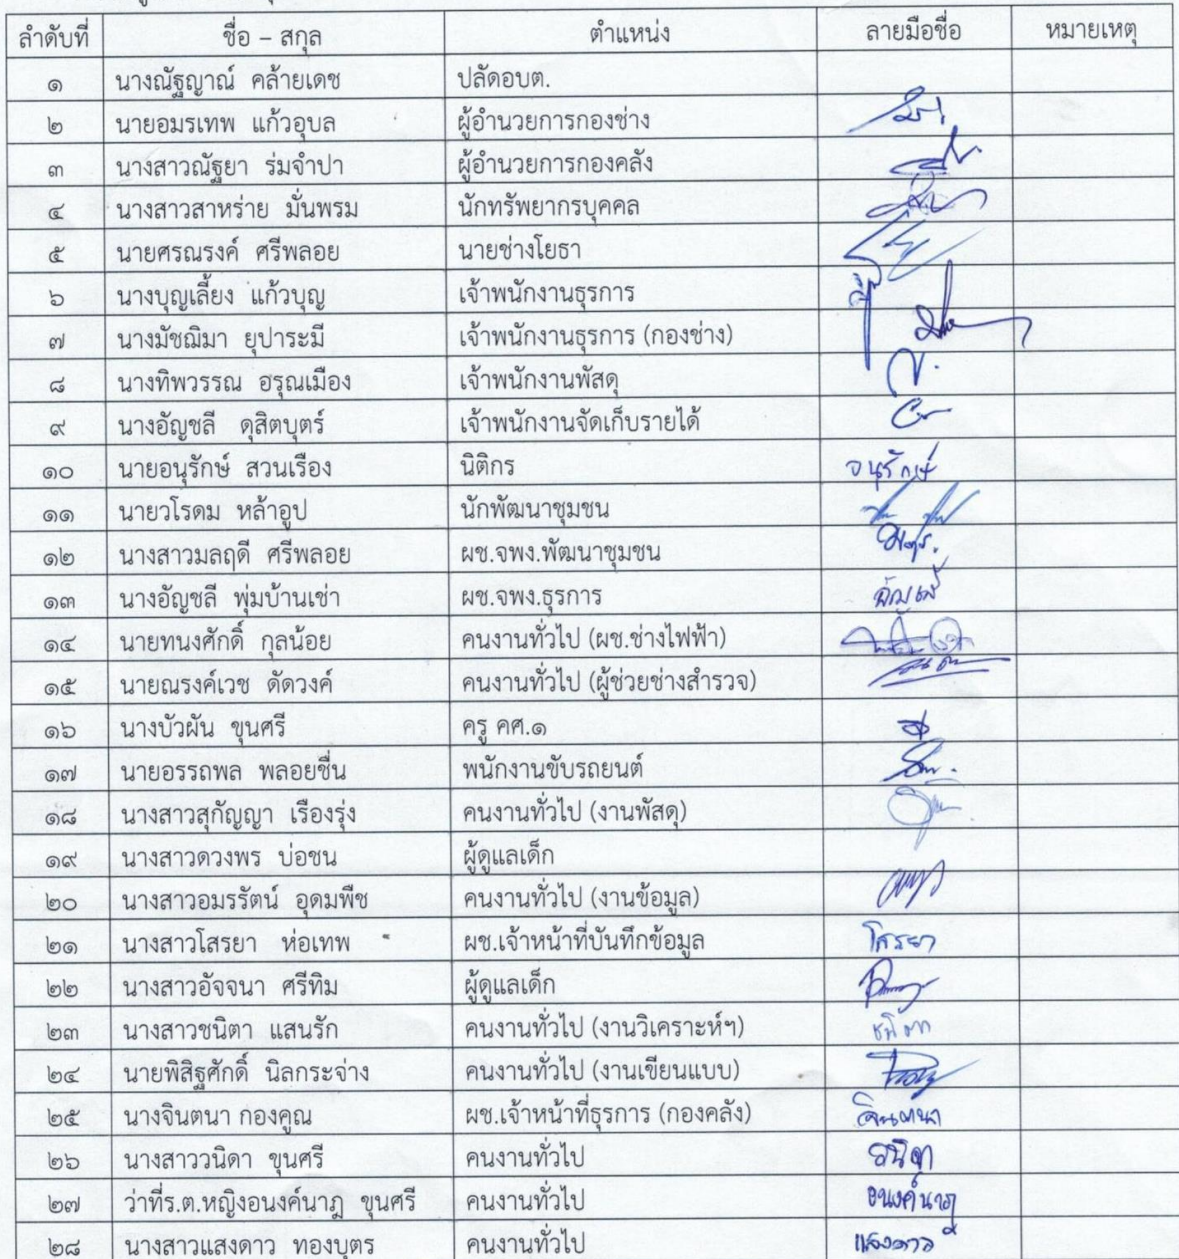 ลำดับที่ ชื่อ – สกุล ตำแหน่ง ลายมือชื่อ หมายเหตุ
๑ นางณัฐญาณ์ คล้ายเดช ปลัดอบต.
๒ นายอมรเทพ แก้วอุบล ผู้อำนวยการกองช่าง
๓ นางสาวณัฐยา ร่มจำปา ผู้อำนวยการกองคลัง
๔ นางสาวสาหร่าย มั่นพรม นักทรัพยากรบุคคล
๕ นายศรณรงค์ ศรีพลอย นายช่างโยธา
๖ นางบุญเลี้ยง แก้วบุญ เจ้าพนักงานธุรการ
๗ นางมัชฌิมา ยุปาระมี เจ้าพนักงานธุรการ (กองช่าง)
๘ นางทิพวรรณ อรุณเมือง เจ้าพนักงานพัสดุ
๙ นางอัญชลี ดุสิตบุตร์ เจ้าพนักงานจัดเก็บรายได้
๑๐ นายอนุรักษ์ สวนเรือง นิติกร อนุรักษ์
๑๑ นายวโรดม หล้าอูป นักพัฒนาชุมชน
๑๒ นางสาวมลฤดี ศรีพลอย ผช.จพง.พัฒนาชุมชน
๑๓ นางอัญชลี พุ่มบ้านเช่า ผช.จพง.ธุรการ
๑๔ นายทนงศักดิ์ กุลน้อย คนงานทั่วไป (ผช.ช่างไฟฟ้า)
๑๕ นายณรงค์เวช ดัดวงค์ คนงานทั่วไป (ผู้ช่วยช่างสำรวจ)
๑๖ นางบัวผัน ขุนศรี ครู คศ.๑
๑๗ นายอรรถพล พลอยชื่น พนักงานขับรถยนต์
๑๘ นางสาวสุกัญญา เรืองรุ่ง คนงานทั่วไป (งานพัสดุ)
๑๙ นางสาวดวงพร บ่อชน ผู้ดูแลเด็ก
๒๐ นางสาวอมรรัตน์ อุดมพืช คนงานทั่วไป (งานข้อมูล)
๒๑ นางสาวโสรยา ห่อเทพ ผช.เจ้าหน้าที่บันทึกข้อมูล โสรยา
๒๒ นางสาวอัจจนา ศรีทิม ผู้ดูแลเด็ก
๒๓ นางสาวชนิตา แสนรัก คนงานทั่วไป (งานวิเคราะห์ฯ) ชนิตา
๒๔ นายพิสิฐศักดิ์ นิลกระจ่าง คนงานทั่วไป (งานเขียนแบบ)
๒๕ นางจินตนา กองคูณ ผช.เจ้าหน้าที่ธุรการ (กองคลัง) จินตนา
๒๖ นางสาววนิดา ขุนศรี คนงานทั่วไป วนิดา
๒๗ ว่าที่ร.ต.หญิงอนงค์นาฎ ขุนศรี คนงานทั่วไป อนงค์นาฎ
๒๘ นางสาวแสงดาว ทองบุตร คนงานทั่วไป แสงดาว